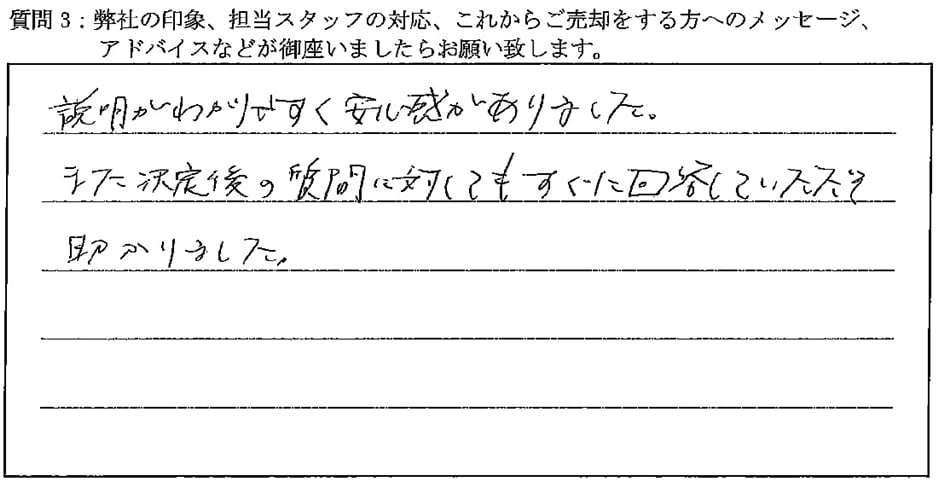 質問3：弊社の印象、担当スタッフの対応、これからご売却をする方へのメッセージ、
アドバイスなどが御座いましたらお願い致します。
説明がわかりやすく安心感がありました。
また決定後の質問に対してもすぐに回答していただき
助かりました。